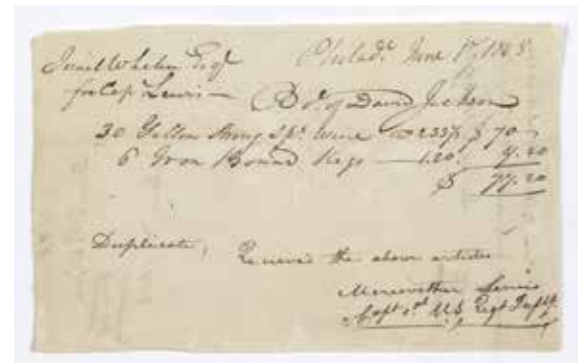 Israel Whelen Esqr Philada June 1st, 1803
for Cap Lewis — Bot. of David Jackson
30 Gallon Strong Spt. Wine 2.33⅓ $ 70 –
6 Iron Bound Kegs — 1.20 7.20
$ 77.20
Duplicate, Received the above articles
Meriwether Lewis
Capt. 1st U.S. Regt Infty.